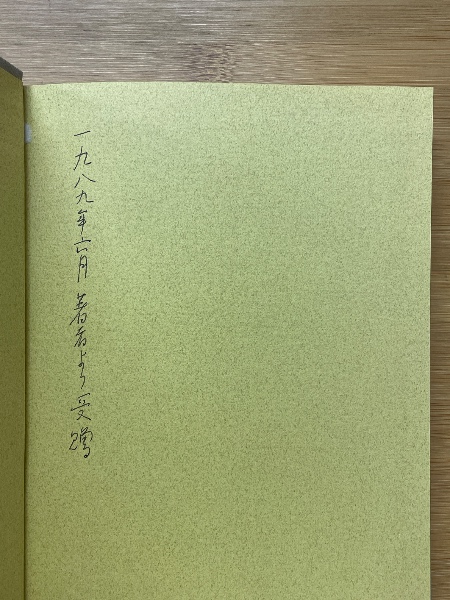 一九八九年六月 著者より受贈